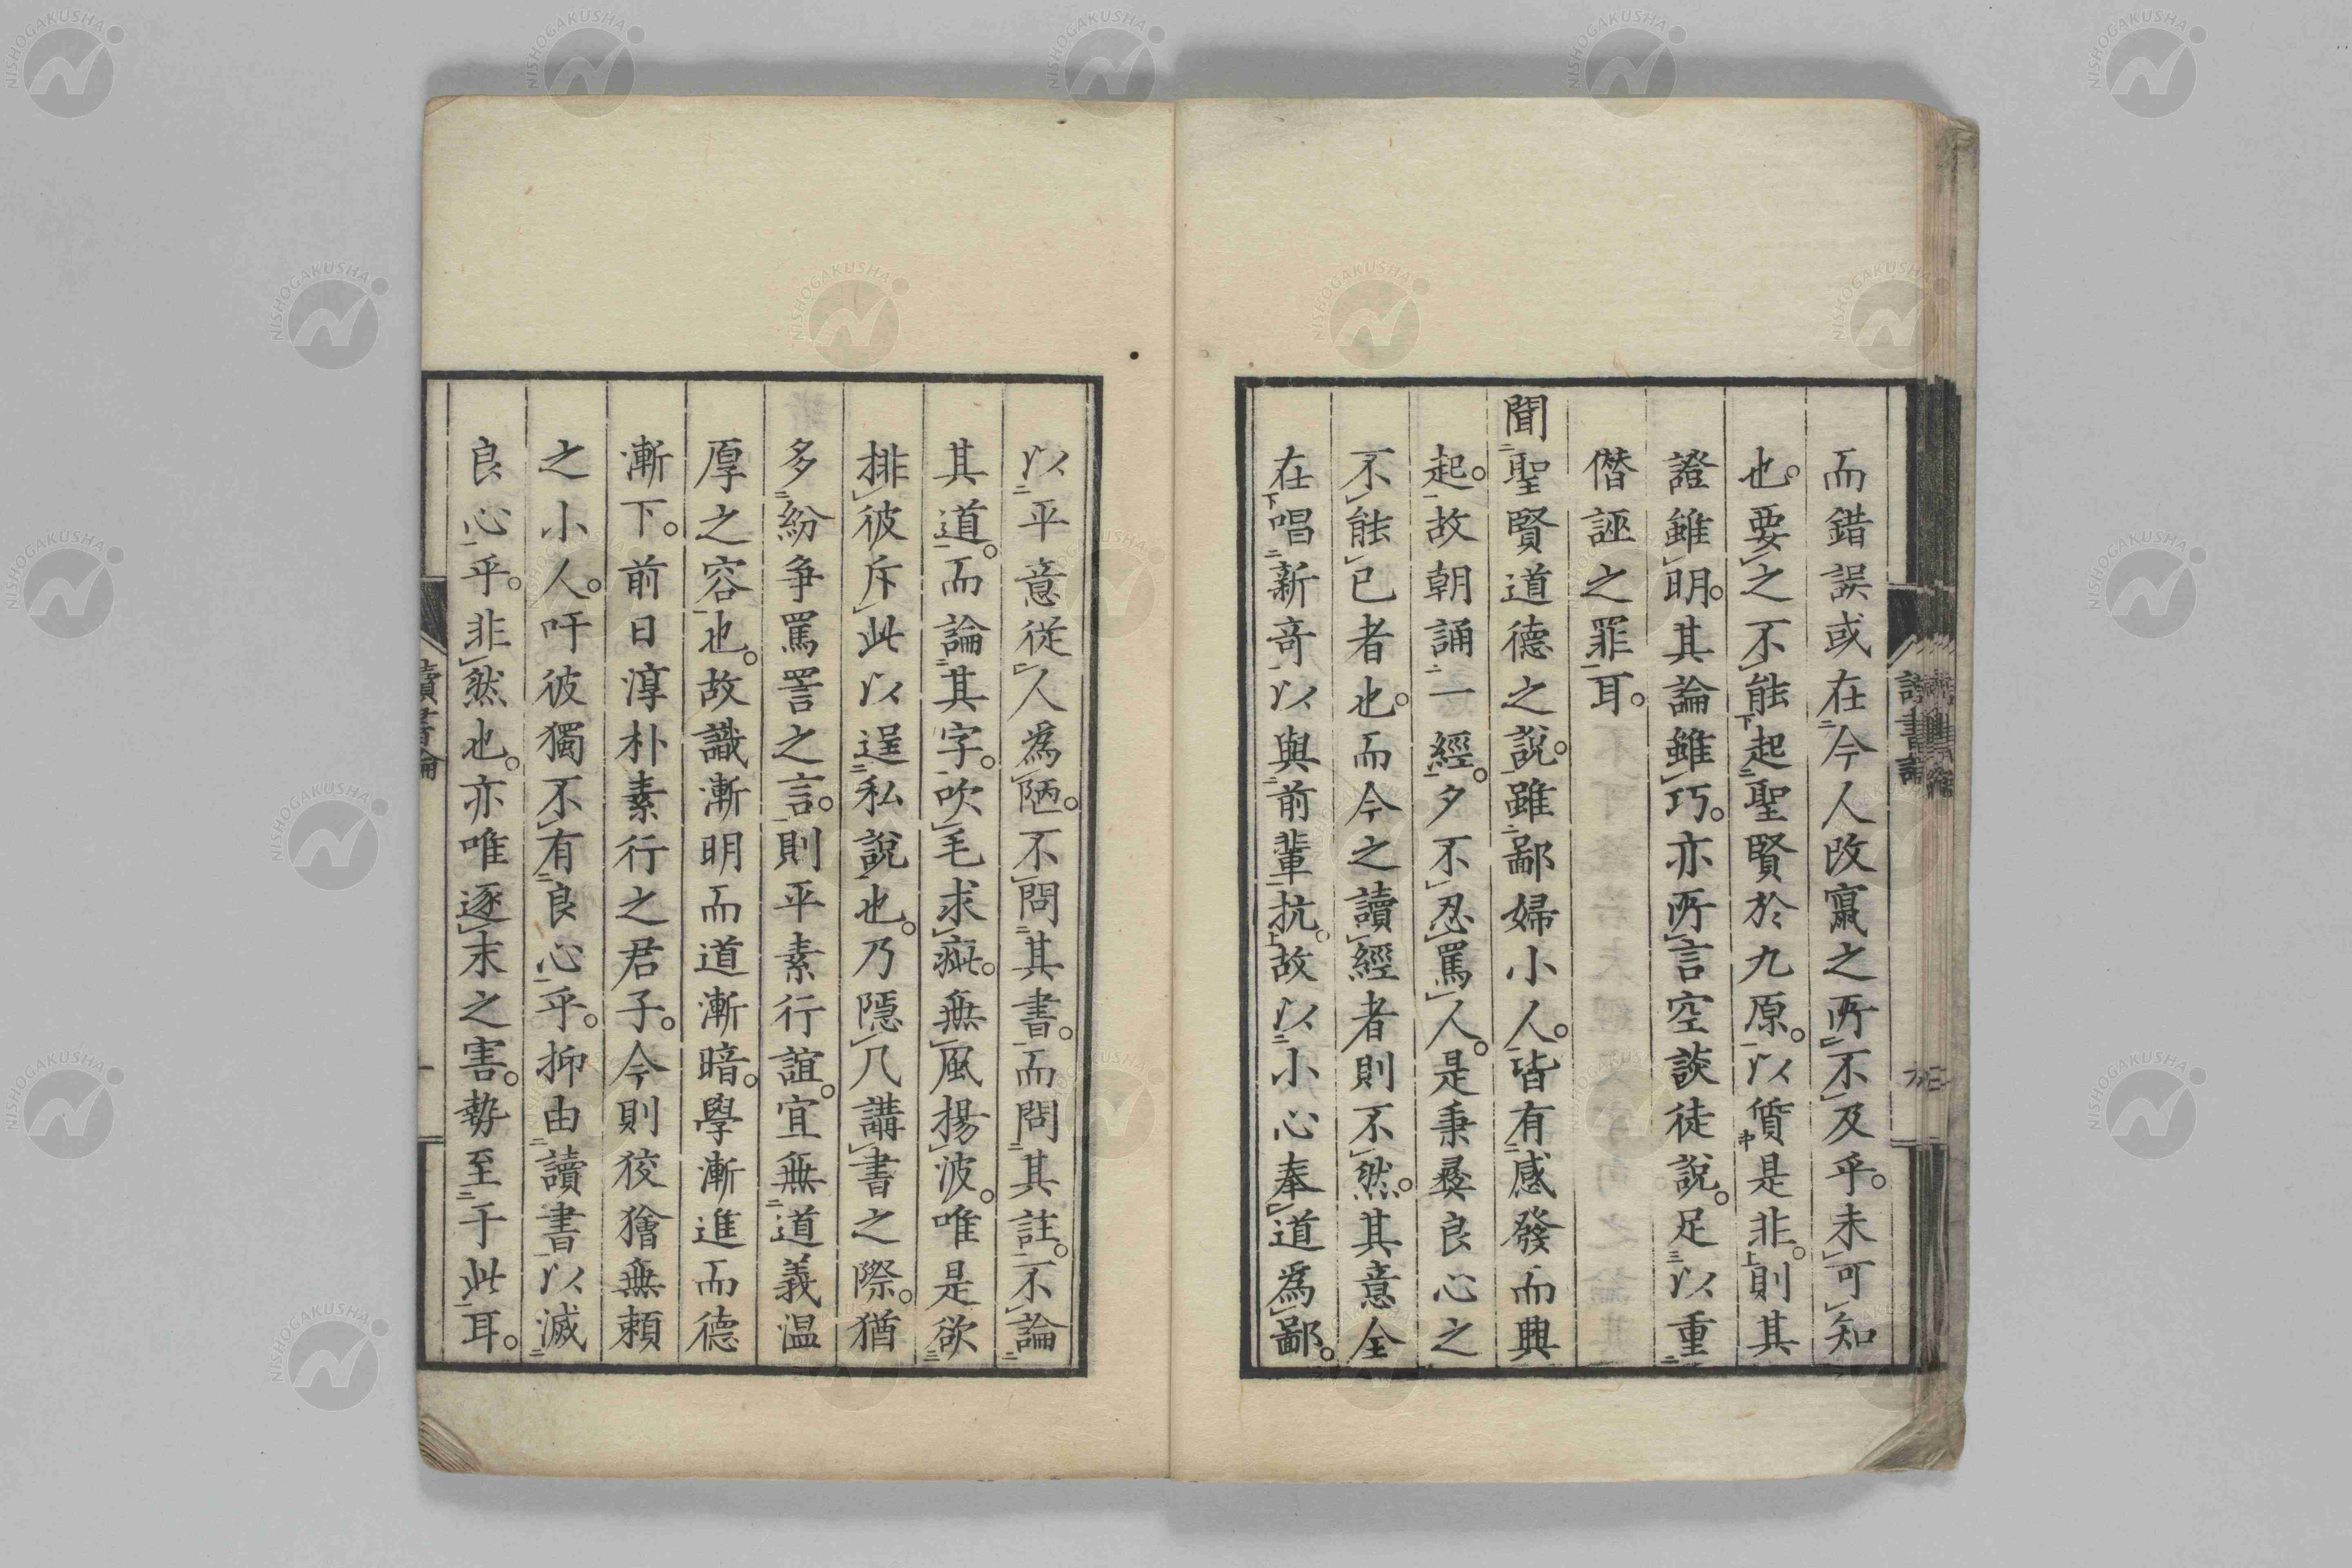 而錯誤或在今人改竄之所不及乎。未可知
也。要之不能起聖賢於九原。以質是非。則其
證雖明。其論雖巧。亦所言空談徒說。足以重
僭誣之罪耳。
聞聖賢道德之說。雖鄙婦小人。皆有感發而興
起。故朝誦一經。夕不忍罵人。是秉彝良心之
不能已者也。而今之讀經者則不然。其意全
在唱新奇以與前輩抗。故以小心奉道為鄙。
以平意從人為陋。不問其書。而問其註。不論
其道。而論其字。吹毛求疵。無風揚波。唯是欲
排彼斥此以逞私說也。乃隱几講書之際。猶
多紛爭罵詈之言。則平素行誼。宜無道義温
厚之容也。故識漸明而道漸暗。學漸進而德
漸下。前日淳朴素行之君子。今則狡獪無賴
之小人。吁彼獨不有良心乎。抑由讀書以滅
良心乎。非然也。亦唯逐末之害。勢至于此耳。
讀書論
NISHOGAKUSHA